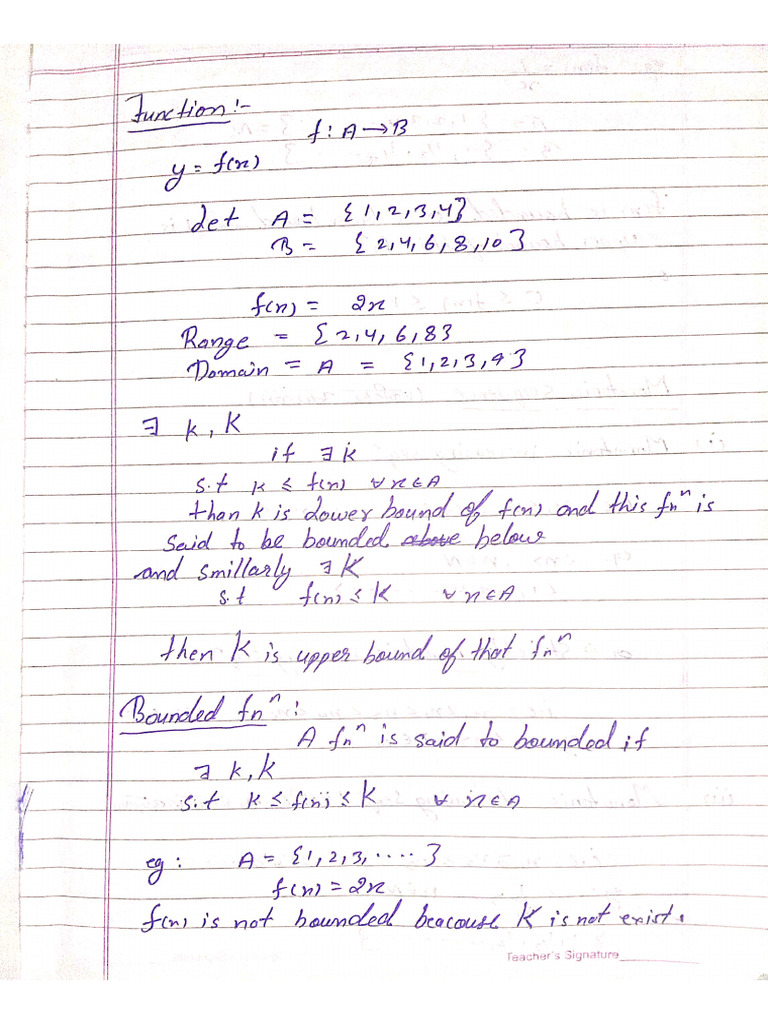 Function :-
f : A → B
y = f(x)
Let A = {1, 2, 3, 4}
B = {2, 4, 6, 8, 10}
f(x) = 2x
Range = {2, 4, 6, 8}
Domain = A = {1, 2, 3, 4}
∃ k, K
if ∃ k
s.t k ≤ f(x) ∀ x ∈ A
than k is Lower bound of f(x) and this fnⁿ is
said to be bounded ~~above~~ below
and smillarly ∃ K
s.t f(x) ≤ K ∀ x ∈ A
then K is upper bound of that fnⁿ
Bounded fnⁿ :
A fnⁿ is said to bounded if
∃ k, K
s.t k ≤ f(x) ≤ K ∀ x ∈ A
eg : A = {1, 2, 3, .....}
f(x) = 2x
f(x) is not bounded beacouse K is not exist.
Teacher's Signature